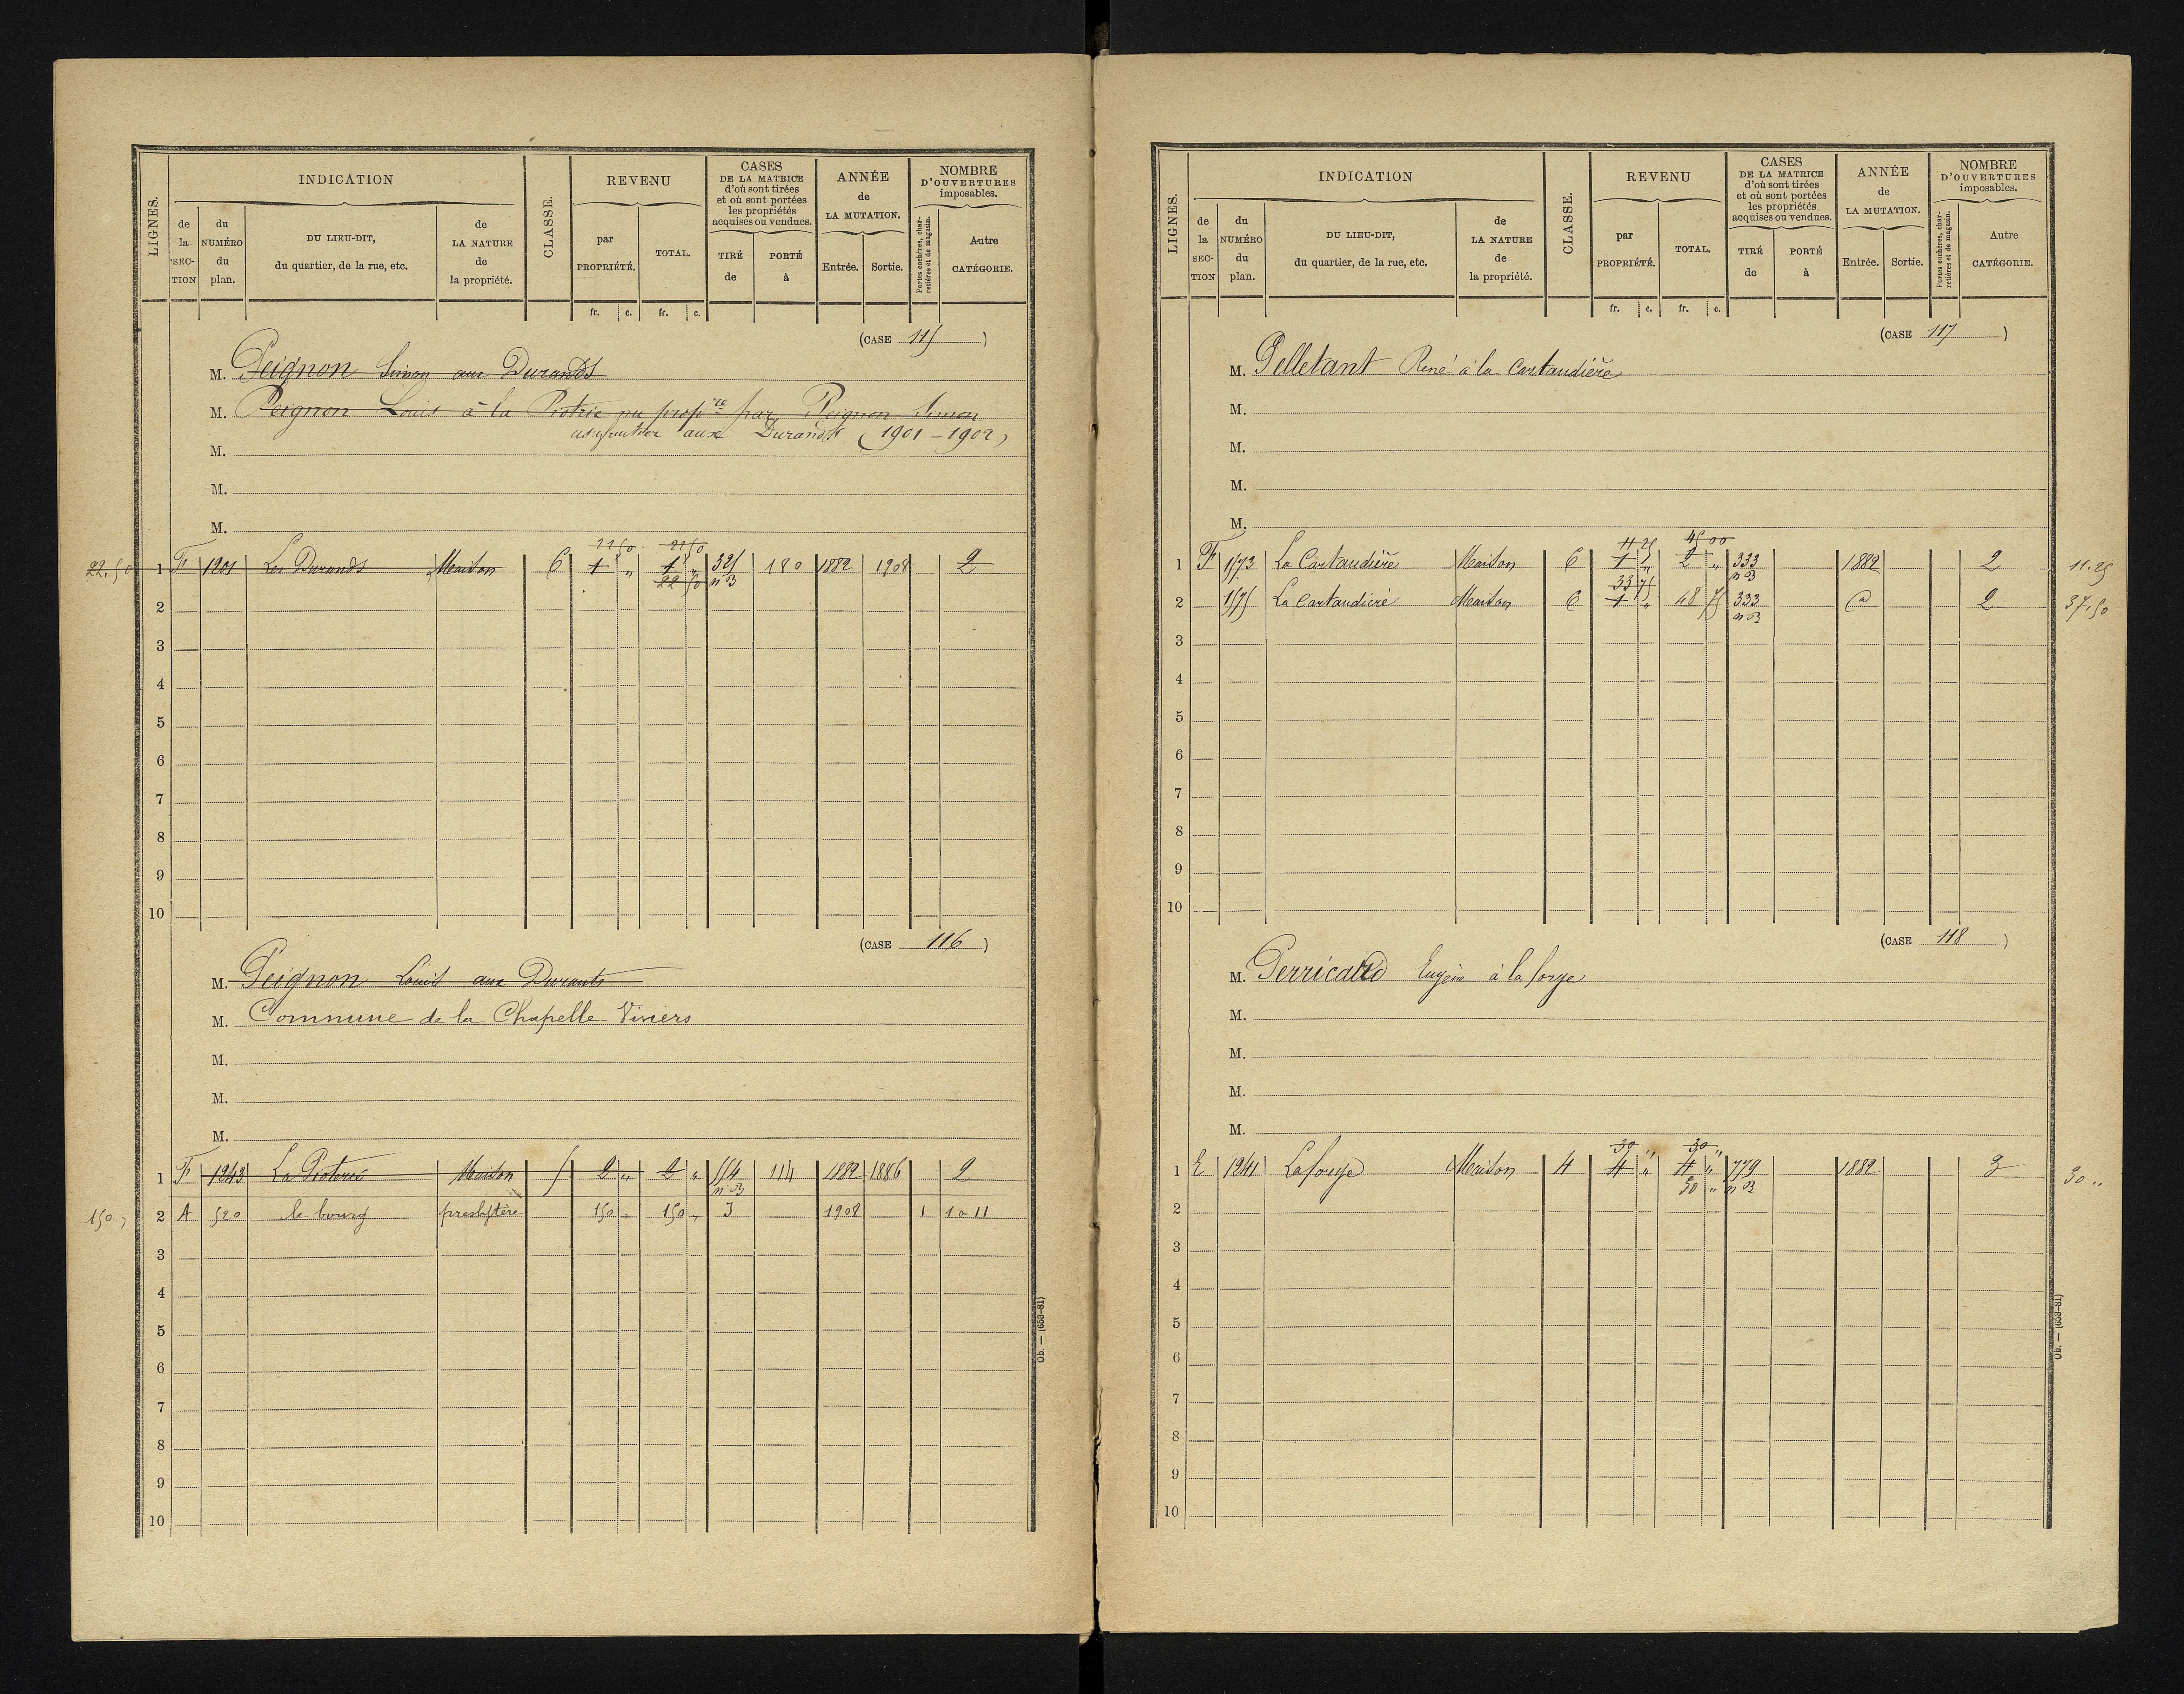 LIGNES. INDICATION CLASSE. REVENU CASES DE LA MATRICE d'où sont tirées et où sont portées les propriétés acquises ou vendues. ANNÉE de LA MUTATION. NOMBRE D'OUVERTURES imposables.
de la SECTION du NUMÉRO du plan. DU LIEU-DIT, du quartier, de la rue, etc. de LA NATURE de la propriété. par PROPRIÉTÉ. TOTAL. TIRÉ de PORTÉ à Entrée. Sortie. Portes cochères, charretières et de magasin. Autre CATÉGORIE.
fr. c. fr. c.
(CASE 115 )
M. Peignon Simon aux Durands
M. Peignon Louis à la Piotrie nu propre par Peignon Simon
usufruitier aux Durands (1901-1902)
M.
M.
M.
22 50 22 50
22,50 1 F 1201 Les Durands Maison 6 1 " 1 " 325 180 1882 1908 2
22 50 n B
2
3
4
5
6
7
8
9
10
(CASE 116 )
M. Peignon Louis aux Durants
M. Commune de la Chapelle-Viviers
M.
M.
M.
1 F 1243 La Pioterie Maison 5 2 " 2 " 554 114 1882 1886 2
n B
150 " 2 A 520 le bourg presbytère 150 " 150 " J 1908 1 10 11
3
4
5
6
7
8
9
10
Ob. — (653-81)
LIGNES. INDICATION CLASSE. REVENU CASES DE LA MATRICE d'où sont tirées et où sont portées les propriétés acquises ou vendues. ANNÉE de LA MUTATION. NOMBRE D'OUVERTURES imposables.
de la SECTION du NUMÉRO du plan. DU LIEU-DIT, du quartier, de la rue, etc. de LA NATURE de la propriété. par PROPRIÉTÉ. TOTAL. TIRÉ de PORTÉ à Entrée. Sortie. Portes cochères, charretières et de magasin. Autre CATÉGORIE.
fr. c. fr. c.
(CASE 117 )
M. Pelletant René à la Cartaudière
M.
M.
M.
M.
11 25 45 00
1 F 1573 La Cartaudière Maison 6 1 " 2 " 333 1882 2 11.25
33 75 n B
2 1575 La Cartaudière Maison 6 1 " 48 75 333 d 2 37,50
n B
3
4
5
6
7
8
9
10
(CASE 118 )
M. Perricaud Eugène à la forge
M.
M.
M.
M.
30 " 30 "
1 E 1241 La forge Maison 4 4 " 4 " 779 1882 3 30 "
30 " n B
2
3
4
5
6
7
8
9
10
Ob. — (653-81)